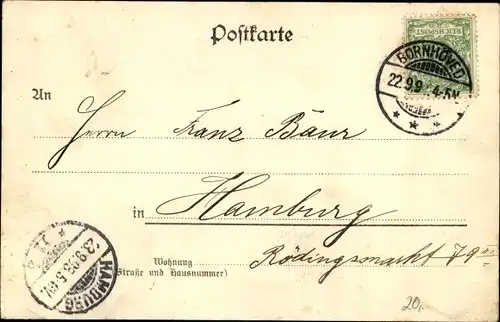 Postkarte
REICHSPOST
BORNHÖVED
22.9.9 4-5N.
An
Herrn Franz Bäur
in Hamburg
Wohnung Rödingsmarkt 79
(Straße und Hausnummer)
HAMBURG
23.9.
20,-